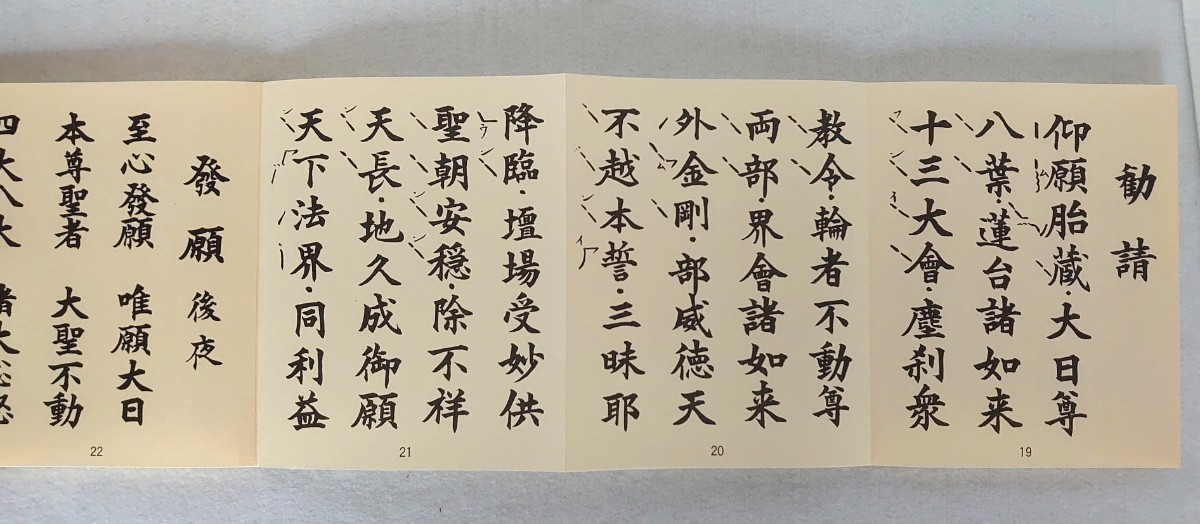 勧請
仰願胎蔵・大日尊
八葉・蓮台諸如来
十三大會・塵刹衆
19
教令・輪者不動尊
両部・界會諸如来
外金剛・部威徳天
不越本誓・三昧耶
20
降臨・壇場受妙供
聖朝安穏・除不祥
天長・地久成御願
天下法界・同利益
21
發願 後夜
至心發願 唯願大日
本尊聖者 大聖不動
四大八大 諸大忿怒
22